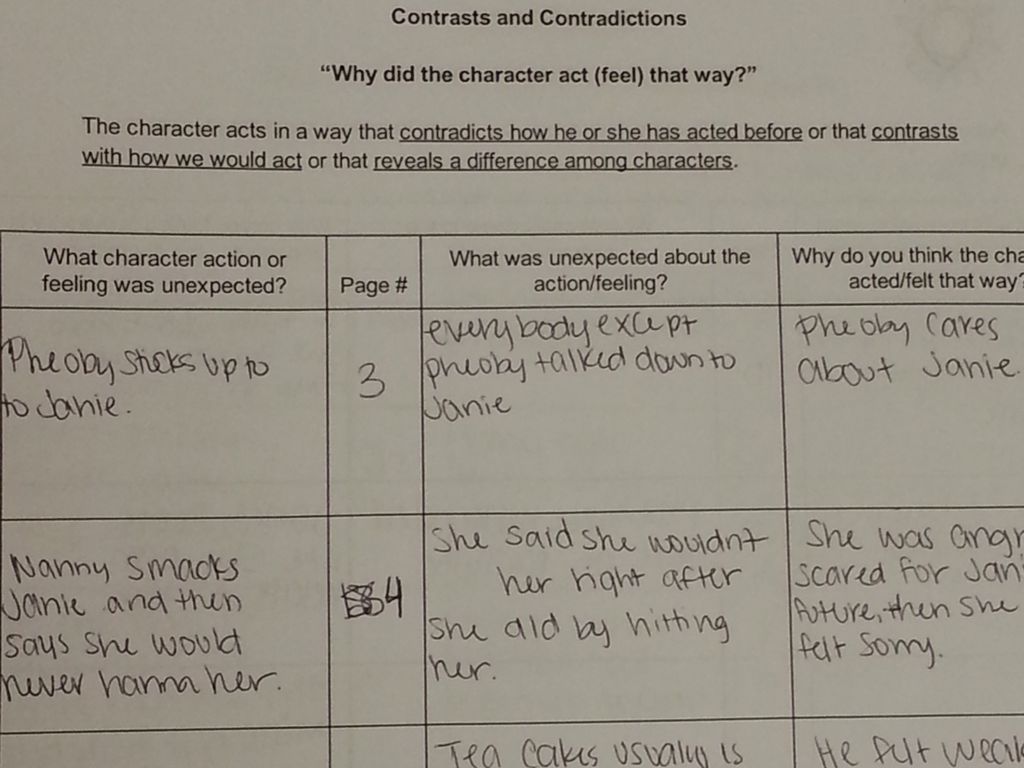 Contrasts and Contradictions
“Why did the character act (feel) that way?”
The character acts in a way that contradicts how he or she has acted before or that contrasts
with how we would act or that reveals a difference among characters.
What character action or
feeling was unexpected?
Page #
What was unexpected about the
action/feeling?
Why do you think the cha
acted/felt that way?
Pheoby sticks up to
to Janie.
3
everybody except
pheoby talked down to
Janie
Pheoby cares
about Janie.
Nanny smacks
Janie and then
says she would
never harm her.
4
She said she wouldnt
her right after
she did by hitting
her.
She was angr
scared for Jani
future, then she
felt sorry.
Tea Cakes usually is
He felt weak